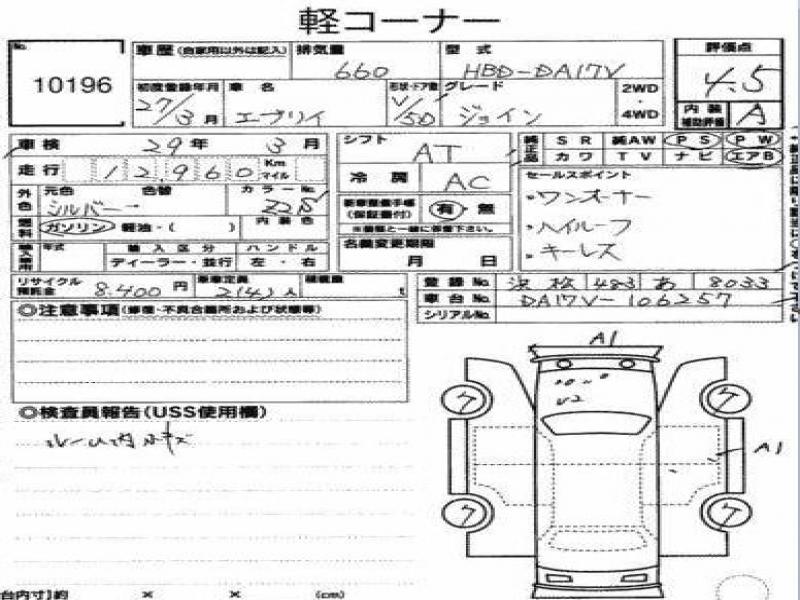 軽コーナー
No. 10196
車歴 (自家用以外は記入) 排気量 660 型式 HBD-DA17V 評価点 4.5
初度登録年月 27/3月 車名 エブリイ 形状・ドア数 V/5D グレード ジョイン 2WD・4WD 内装補助評価 A
車検 29年 3月 シフト AT 純正品 SR 純AW PS PW
カワ TV ナビ エアB
走行 12,960 Km マイル 冷房 AC セールスポイント
外色 元色 シルバー 色替 カラーNo. Z2S 新車整備手帳(保証書付) 有・無 ・ワンオーナー
燃料 ガソリン 軽油・( ) 内装色 ※書類と一緒に保管下さい。 ・ハイルーフ
輸入車用 年式 輸入区分 ハンドル 名義変更期限 ・キーレス
ディーラー・並行 左・右 月 日
リサイクル預託金 8,400円 乗車定員 2(4)人 積載量 t 登録No. 483 あ 8033
車台No. DA17V-106257
シリアルNo.
◎注意事項(修復・不良台箇所および状態等)
A1
◎検査員報告(USS使用欄)
ルーム内小キズ
U2
ケ ケ
A1
ケ ケ
台内寸]約 × × (cm)